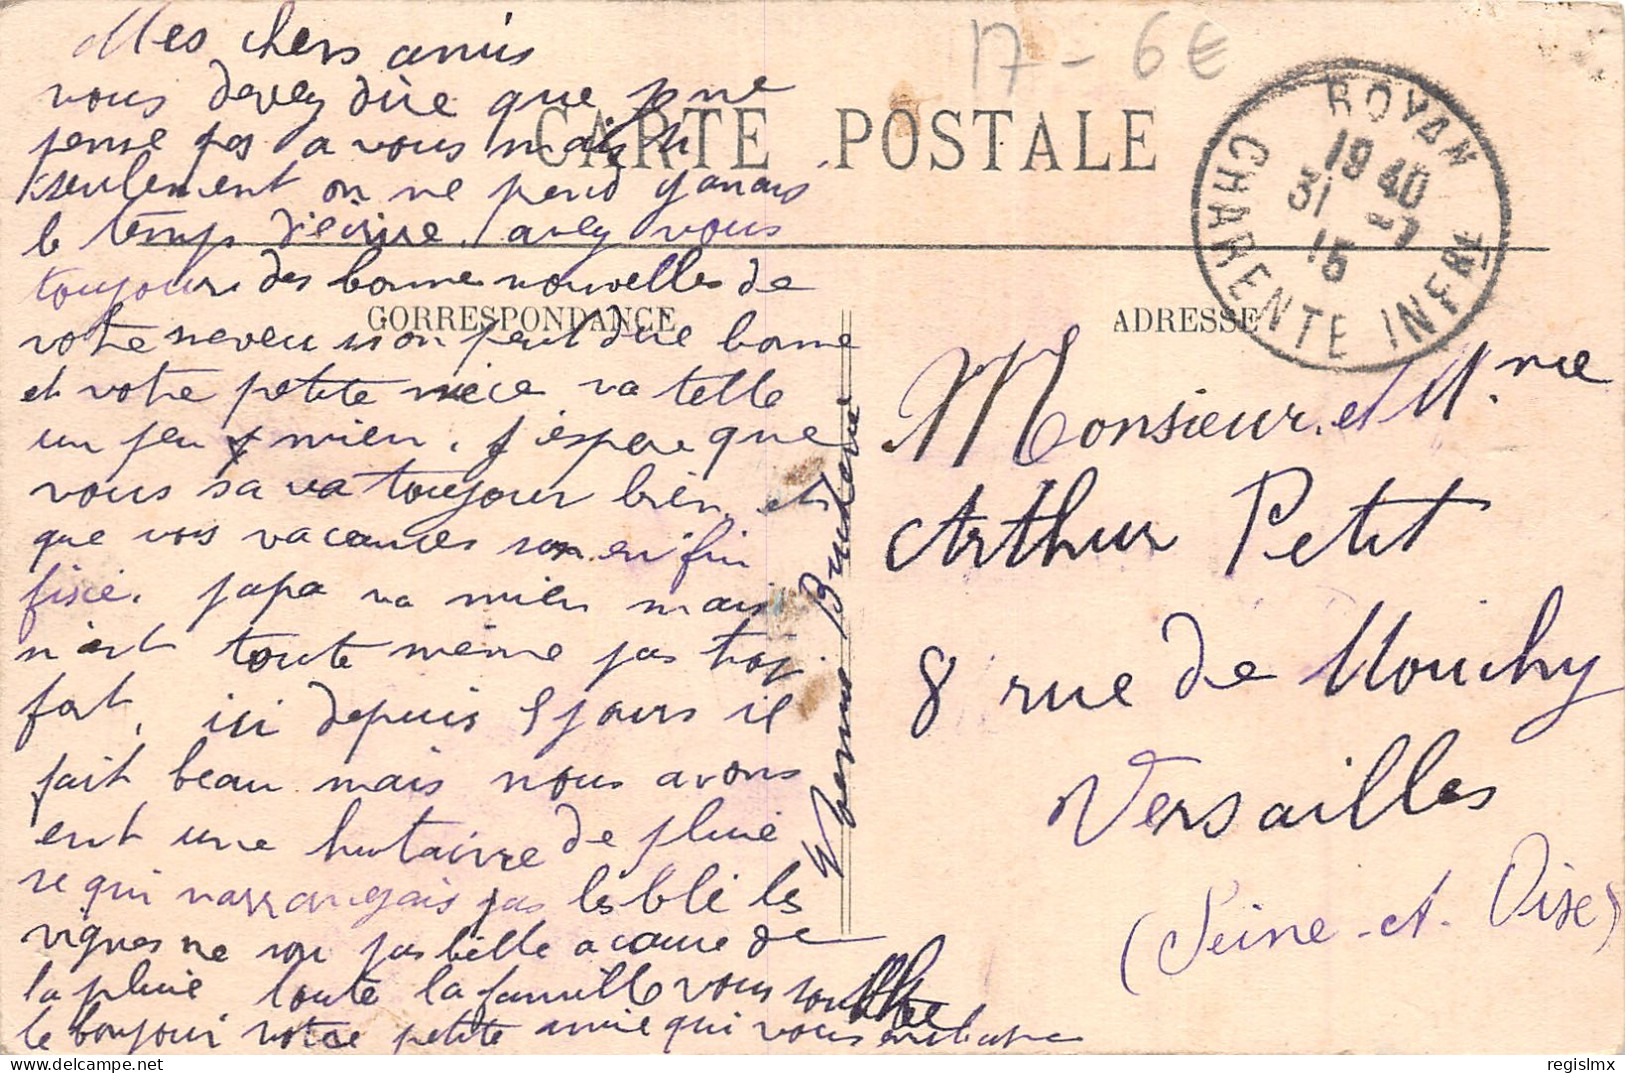 17 - 6€
CARTE POSTALE
ROYAN
19 40
31 -7
15
CHARENTE INFRE
CORRESPONDANCE
ADRESSE
Mes chers amis
vous devez dire que je ne
pense pas a vous mais
seulement on ne pend
le temps d'écrire. avez vous
toujours des bonne nouvelles de
votre neveu ici on peut dire bonne
et votre petite niece va telle
un peu mieu. j'espere que
vous sa va toujour bien et
que vos vacances son en fin
fixé. papa va mieu mais
n'est toute même pas trop
fort, ici depuis 8 jours il
fait beau mais nous avons
ent une de pluie
se qui pas les blé les
vignes ne son pas belle a cause de
la pluie toute la famille vous
le bonjour votre petite amie qui vous
Monsieur et Mme
Arthur Petit
8 rue de Mouchy
Versailles
(Seine-et-Oise)
regislmx